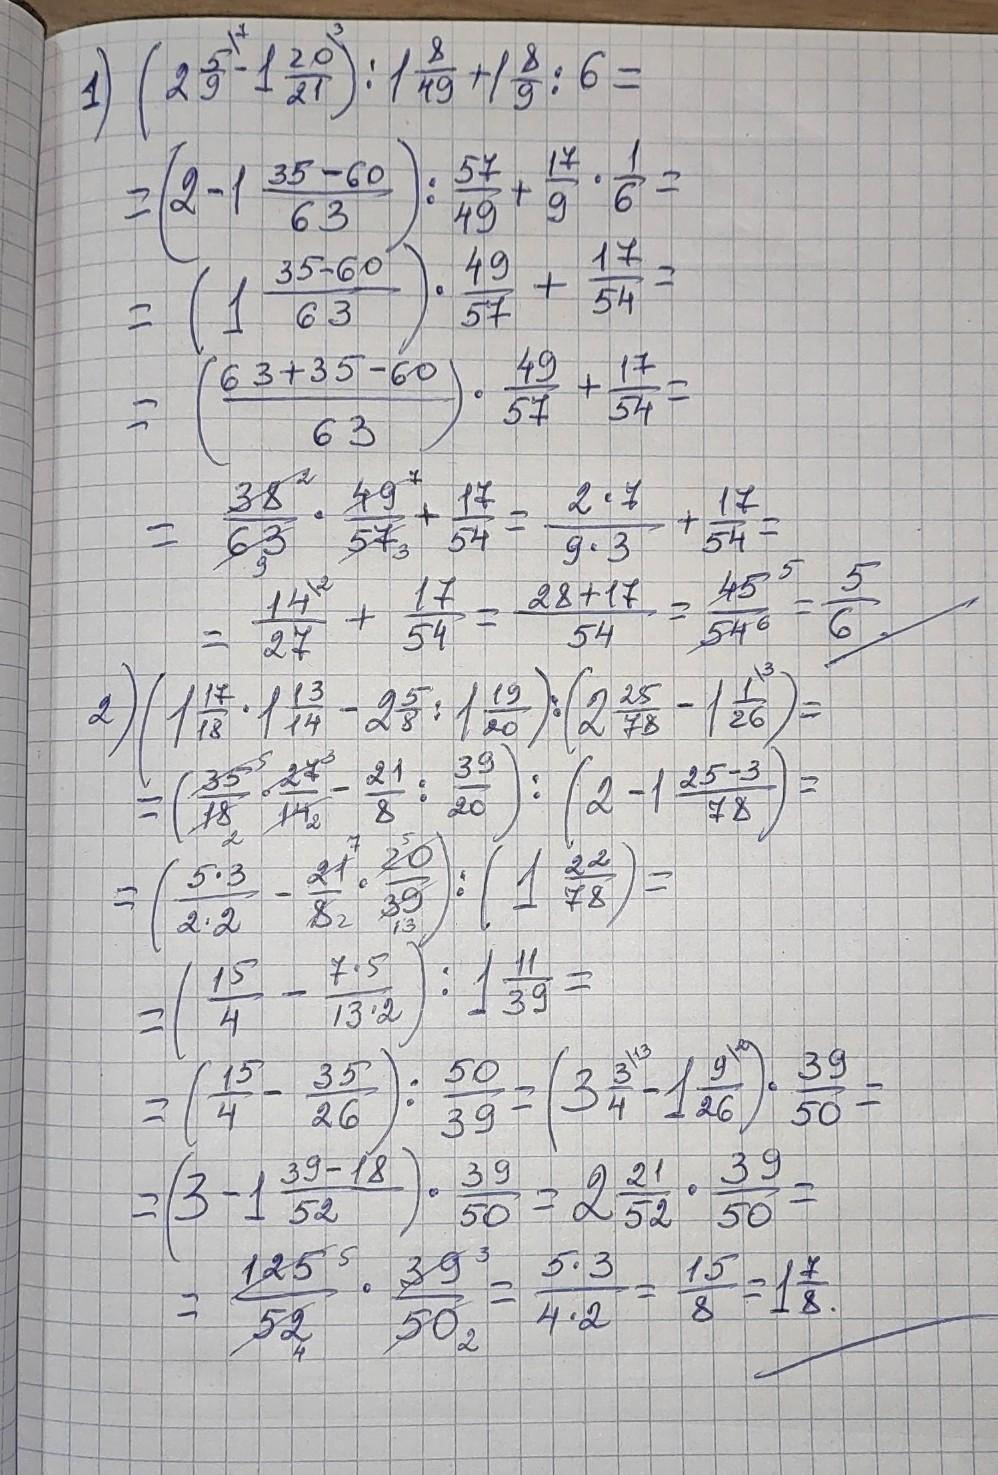 1) (2 5/9 \7 - 1 20/21 \3) : 1 8/49 + 1 8/9 : 6 =
= (2 - 1 (35-60)/63) : 57/49 + 17/9 · 1/6 =
= (1 (35-60)/63) · 49/57 + 17/54 =
= ((63+35-60)/63) · 49/57 + 17/54 =
= 38 2/63 9 · 49 7/57 3 + 17/54 = (2·7)/(9·3) + 17/54 =
= 14 \2/27 + 17/54 = (28+17)/54 = 45 5/54 6 = 5/6.
2) (1 17/18 · 1 13/14 - 2 5/8 : 1 19/20) : (2 25/78 - 1 1/26 \3) =
= (35 5/18 2 · 27 3/14 2 - 21/8 : 39/20) : (2 - 1 (25-3)/78) =
= ((5·3)/(2·2) - 21 7/8 2 · 20 5/39 13) : (1 22/78) =
= (15/4 - (7·5)/(13·2)) : 1 11/39 =
= (15/4 - 35/26) : 50/39 = (3 3/4 \13 - 1 9/26 \2) · 39/50 =
= (3 - 1 (39-18)/52) · 39/50 = 2 21/52 · 39/50 =
= 125 5/52 4 · 39 3/50 2 = (5·3)/(4·2) = 15/8 = 1 7/8.